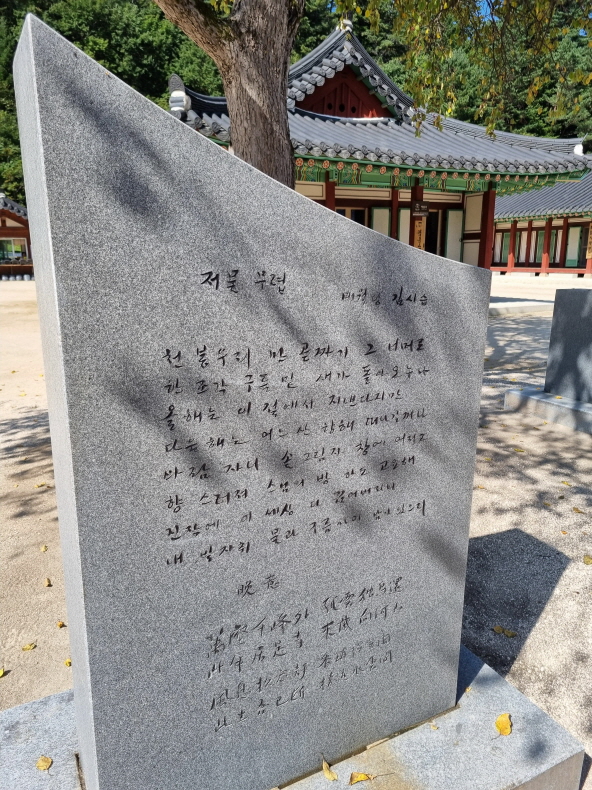 저물 무렵
매월당 김시습
천 봉우리 만 골짜기 그 너머로
한 조각 구름 밑 새가 돌아오누나
올해는 이 절에서 지낸다지만
다음 해는 어느 산 향해 떠나갈꺼나
바람 자니 솔 그림자 창에 어리고
향 스러져 스님의 방 하도 고요해
진작에 이 세상 다 끊어버리니
내 발자취 물과 구름사이 남아 있으리
晩意
萬壑千峰外 孤雲獨鳥還
此年居是寺 來歲向何山
風息松窓靜 香銷禪室閑
此生吾已斷 棲迹水雲間